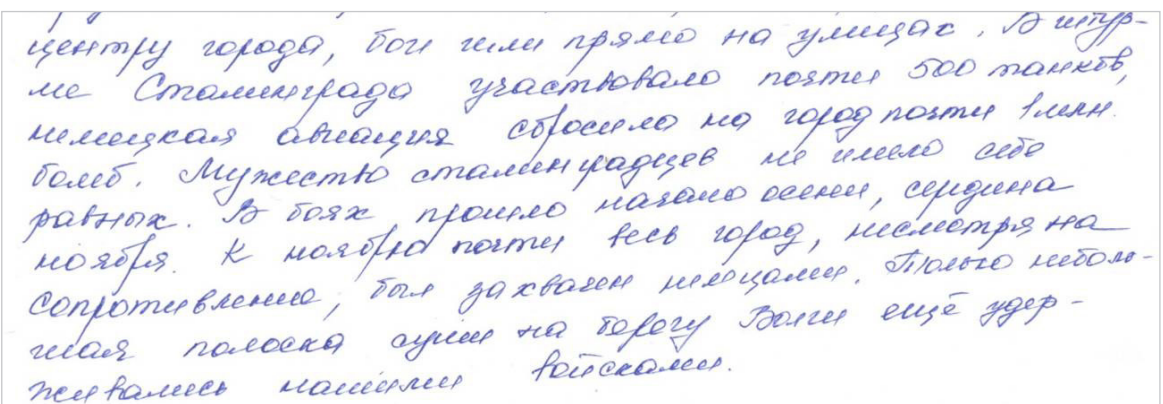 центру города, бои шли прямо на улицах. В штур-
ме Сталинграда участвовало почти 500 танков,
немецкая авиация сбросила на город почти 1 млн.
бомб. Мужество сталинградцев не имело себе
равных. В боях прошло начало осени, середина
ноября. К ноябрю почти весь город, несмотря на
сопротивление, был захвачен немцами. Только неболь-
шая полоска суши на берегу Волги ещё удер-
живались нашими войсками.